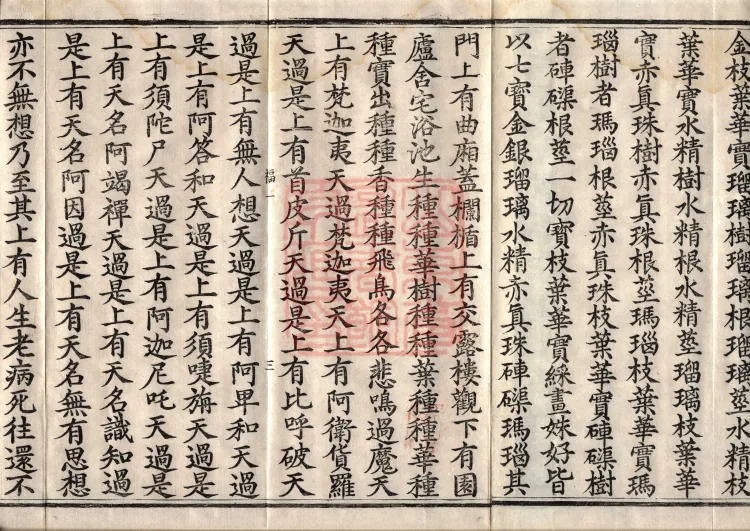 金枝葉華實瑠璃樹瑠璃根瑠璃莖水精枝
葉華實水精樹水精根水精莖瑠璃枝葉華
實赤真珠樹赤真珠根莖瑪瑙枝葉華實瑪
瑙樹者瑪瑙根莖赤真珠枝葉華實硨磲樹
者硨磲根莖一切寶枝葉華實綵畫姝好皆
以七寶金銀瑠璃水精赤真珠硨磲瑪瑙其
門上有曲廂蓋欄楯上有交露樓觀下有園
廬舍宅浴池生種種華樹種種葉種種華種
種實出種種香種種飛鳥各各悲鳴過魔天
上有梵迦夷天過梵迦夷天上有阿衛貨羅
天過是上有首皮斤天過是上有比呼破天
福一
三
過是上有無人想天過是上有阿卑和天過
是上有阿答和天過是上有須㖑旃天過是
上有須陀尸天過是上有阿迦尼吒天過是
上有天名阿竭禪天過是上有天名識知過
是上有天名阿因過是上有天名無有思想
亦不無想乃至其上有人生老病死往還不